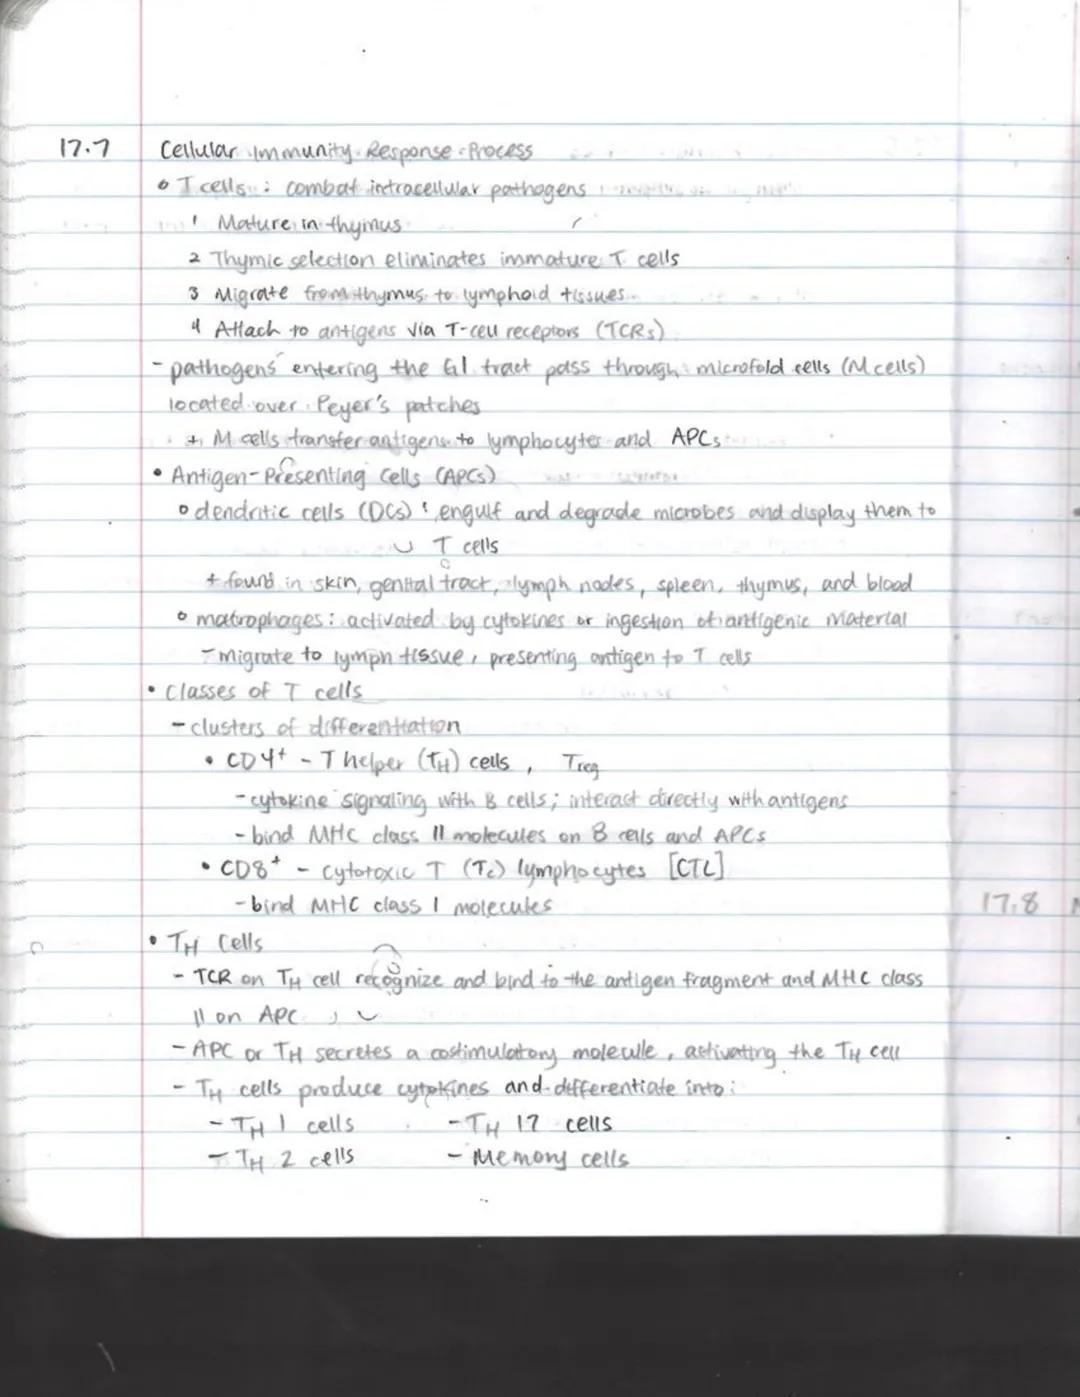 17.7 Cellular Immunity Response Process
o T cells : combat intracellular pathogens
1 Mature in thymus
2 Thymic selection eliminates immature T cells
3 Migrate from thymus to lymphoid tissues
4 Attach to antigens via T-cell receptors (TCRs)
- pathogens entering the GI tract pass through microfold cells (M cells)
located over Peyer's patches
+ M cells transfer antigens to lymphocytes and APCs
• Antigen-Presenting Cells (APCs)
o dendritic cells (DCs) : engulf and degrade microbes and display them to
T cells
+ found in skin, genital tract, lymph nodes, spleen, thymus, and blood
o macrophages : activated by cytokines or ingestion of antigenic material
- migrate to lymph tissue, presenting antigen to T cells
• Classes of T cells
- clusters of differentiation
• CD4+ - T helper (TH) cells, Treg
- cytokine signaling with B cells; interact directly with antigens
- bind MHC class II molecules on B cells and APCs
• CD8+ - cytotoxic T (Tc) lymphocytes [CTL]
- bind MHC class I molecules
17.8
• TH Cells
- TCR on TH cell recognize and bind to the antigen fragment and MHC class
II on APC
- APC or TH secretes a costimulatory molecule, activating the TH cell
- TH cells produce cytokines and differentiate into:
- TH 1 cells - TH 17 cells
- TH 2 cells - Memory cells